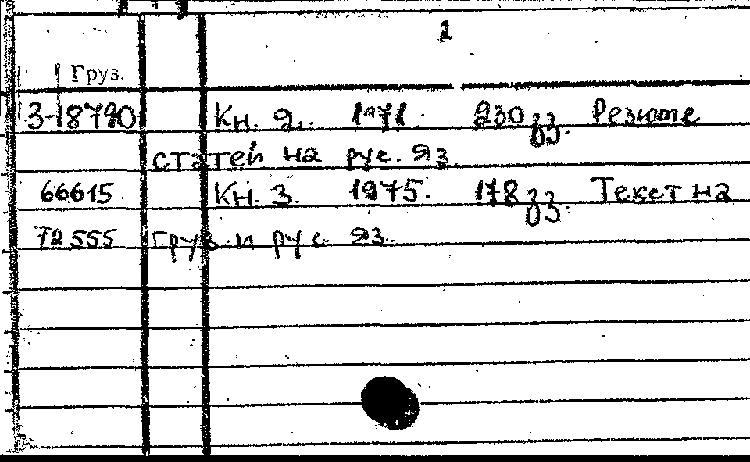 1
Груз.
3-18790 Кн. 2. 1971. 230 გვ. Резюме
статей на рус. яз.
66615 Кн. 3. 1975. 178 გვ. Текст на
72.555 груз. и рус. яз.